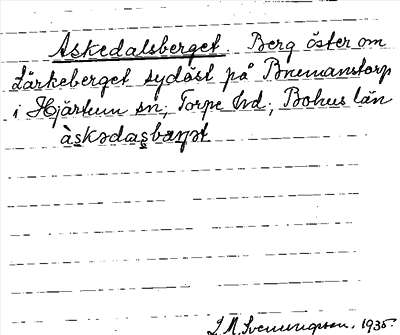 Askedalsberget. Berg öster om
Lärkeberget sydöst på Bremanstorp
i Hjärtum sn, Torpe hd, Bohus län
àskədasbærjət
J. M. Svenungsson. 1935.